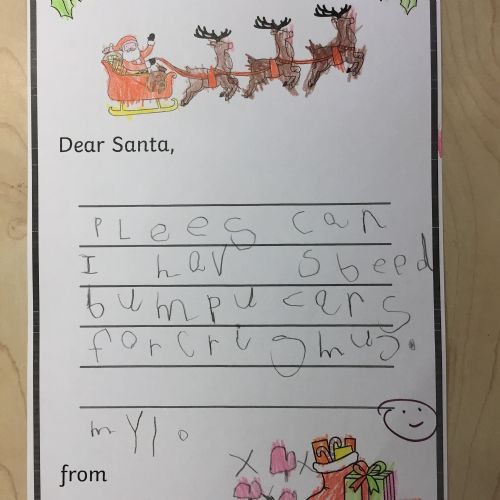 Dear Santa,
PLees can
I hav sbeed
bumpu cars
forcrigmus.
mYlo
from